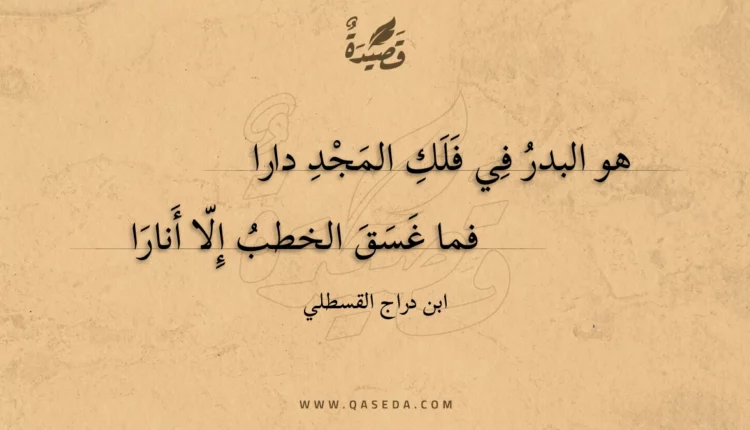 قَصِيْدَةٌ
هو البدرُ فِي فَلَكِ المَجْدِ دارا
فما غَسَقَ الخطبُ إِلّا أَنارَا
ابن دراج القسطلي
WWW.QASEDA.COM